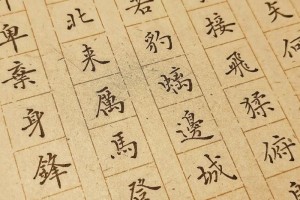 矢何
接飛猱俯身
若豹螭邊城
北来厲馬登
卑棄身鋒